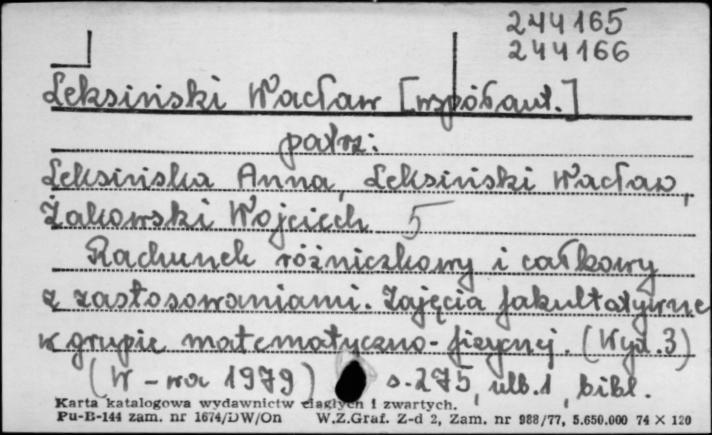 244165
244166
Leksiński Wacław [współaut.]
patrz:
Leksińska Anna, Leksiński Wacław,
Żakowski Wojciech 5
Rachunek różniczkowy i całkowy
z zastosowaniami. Zajęcia fakultatywne
w grupie matematyczno-fizycznej. (Wyd. 3)
(W-wa 1979) s. 275, ulb. 1, bibl.
Karta katalogowa wydawnictw ciągłych i zwartych.
Pu-B-144 zam. nr 1674/DW/On W.Z.Graf. Z-d 2, Zam. nr 988/77, 5.650.000 74 X 120